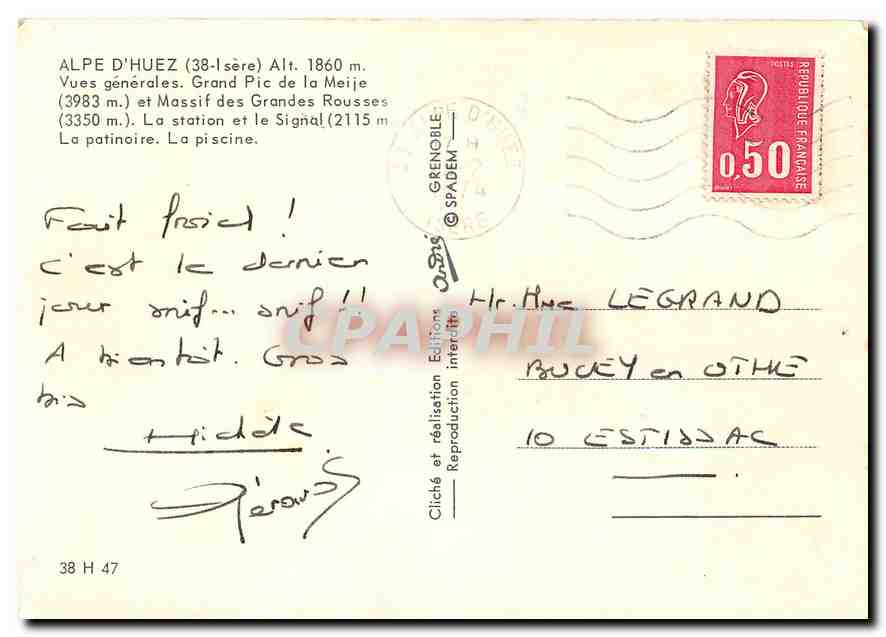 ALPE D'HUEZ (38-Isère) Alt. 1860 m.
Vues générales. Grand Pic de la Meije
(3983 m.) et Massif des Grandes Rousses
(3350 m.). La station et le Signal (2115 m
La patinoire. La piscine.
Fait froid !
C'est le dernier
jour snif... snif !!
A bientôt. Gros
bis
Michèle.
Gérard
38 H 47
Cliché et réalisation Editions André GRENOBLE
Reproduction interdite © SPADEM
L'ALPE D'HUEZ
74
ISERE
POSTES
REPUBLIQUE FRANÇAISE
0,50
Mr. Mme LEGRAND
BUCEY en OTHE
10 ESTISSAC
CPAPHIL